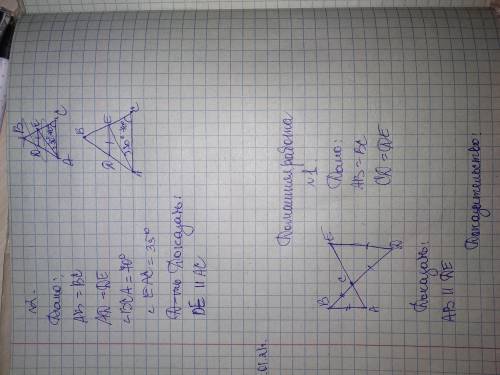 Домашняя работа
№1
Дано:
AB = BC
CD = DE
E
B
C
D
A
Доказать:
AB || DE
Доказательство:
№2.
Дано:
AB = BC
AD = DE
∠BCA = 70°
∠EAC = 35°
Д-ть Доказать:
DE || AC
B
E
C
D
A
35°
70°
B
E
C
D
A
35°
70°